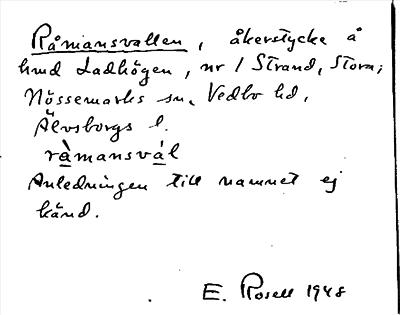 Råmansvallen, åkerstycke å
hmd Ladhögen, nr 1 Strand, Stora;
Nössemarks sn, Vedbo hd,
Älvsborgs l.
rà̱mansvá̱l
Anledningen till namnet ej
känd.
E. Rosell 1948